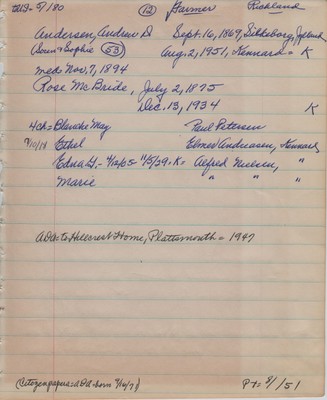 5/80 (12) Farmer Richland
Andersen, Andrew D Sept. 16, 1869, Silkeborg, Jutland
(Soren & Sophie (53) Aug. 2, 1951, Kennard = K
med: Nov. 7, 1894
Rose McBride, July 2, 1875
Dec. 13, 1934 K
4ch = Blanche May Paul Petersen
Ethel Elmer Andreasen, Kennard
Edna G. - 11/5/29 = K = Alfred Nielsen, "
Marie " " "
ADA: to Hillcrest Home, Plattsmouth = 1947
(Citizenpapers: ADA = born
PT = 8/51